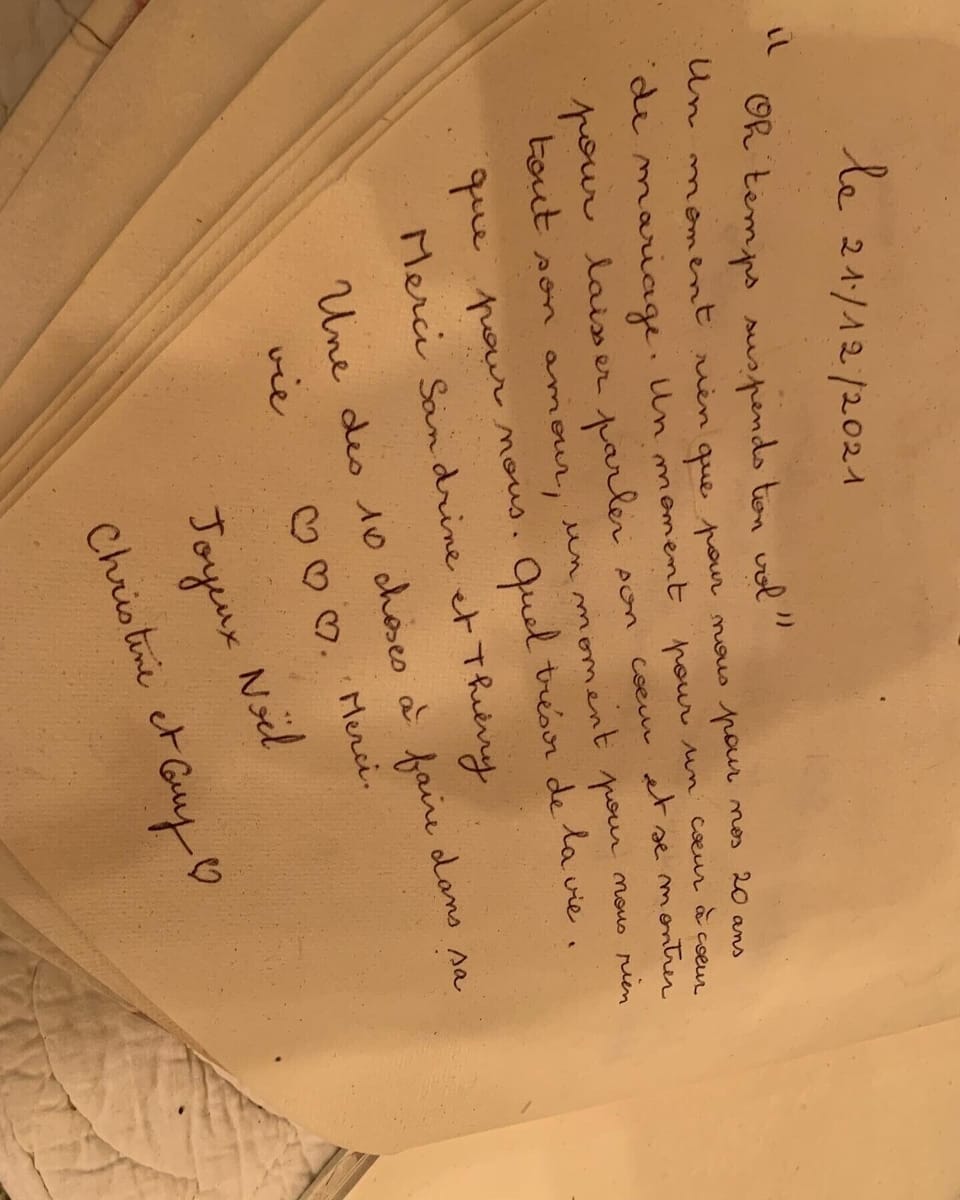 le 21/12/2021
" Oh temps suspends ton vol "
Un moment rien que pour nous pour nos 20 ans
de mariage. Un moment pour un cœur à cœur
pour laisser parler son cœur et se montrer
tout son amour, un moment pour nous rien
que pour nous. Quel trésor de la vie.
Merci Sandrine et Thierry
Une des 10 choses à faire dans sa
vie ♡ ♡ ♡. Merci.
Joyeux Noël
Christine et Guy ♡